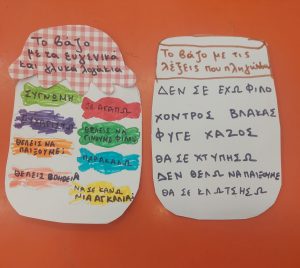 Το βάζο
με τα ευγενικά
και γλυκά λογάκια
ΣΥΓΝΩΜΗ
ΣΕ ΑΓΑΠΩ
ΕΥΧΑΡΙΣΤΩ
ΘΕΛΕΙΣ ΝΑ
ΓΙΝΟΥΜΕ ΦΙΛΟΙ
ΘΕΛΕΙΣ ΝΑ
ΠΑΙΞΟΥΜΕ;
ΠΑΡΑΚΑΛΩ
ΘΕΛΕΙΣ ΒΟΗΘΕΙΑ
ΝΑ ΣΕ ΚΑΝΩ
ΜΙΑ ΑΓΚΑΛΙΑ;
Το βάζο με τις
λέξεις που πληγώνουν
ΔΕΝ ΣΕ ΕΧΩ ΦΙΛΟ
ΧΟΝΤΡΟΣ ΒΛΑΚΑΣ
ΦΥΓΕ ΧΑΖΟΣ
ΘΑ ΣΕ ΧΤΥΠΗΣΩ
ΔΕΝ ΘΕΛΩ ΝΑ ΠΑΙΞΟΥΜΕ
ΘΑ ΣΕ ΚΛΩΤΣΗΣΩ